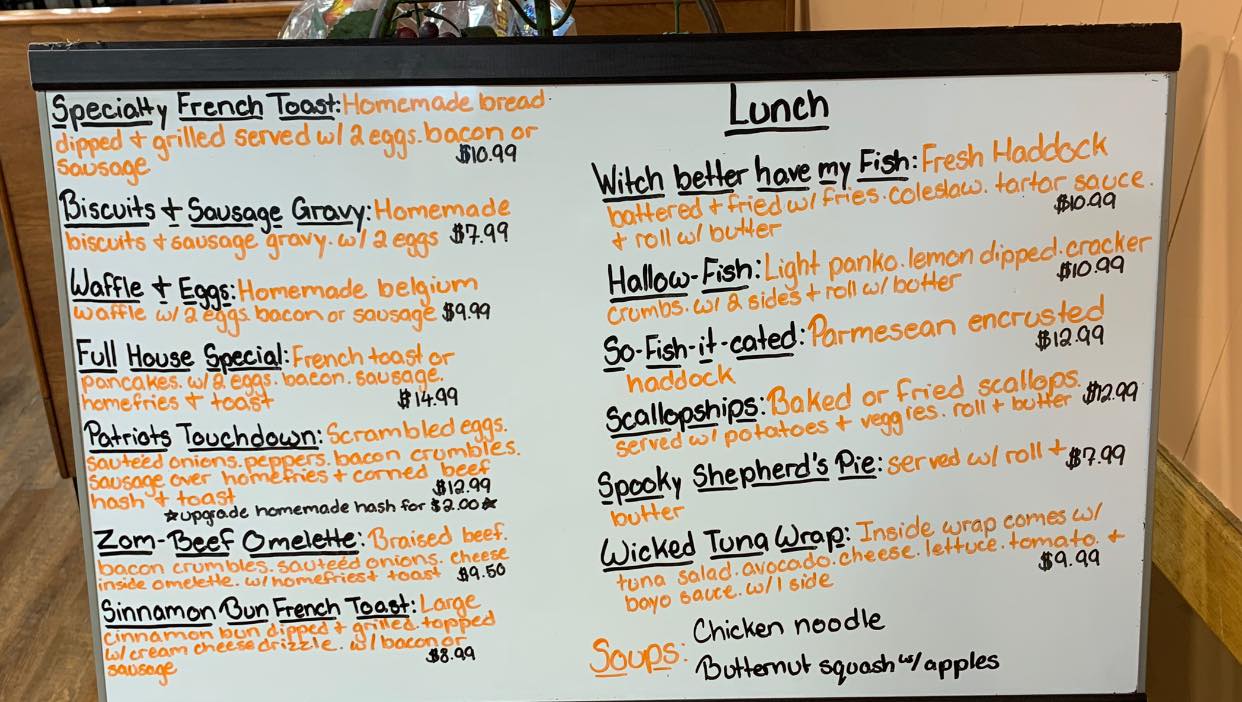 Specialty French Toast: Homemade bread
dipped + grilled served w/ 2 eggs. bacon or
sausage $10.99
Biscuits + Sausage Gravy: Homemade
biscuits + sausage gravy. w/ 2 eggs $7.99
Waffle + Eggs: Homemade belgium
waffle w/ 2 eggs. bacon or sausage $9.99
Full House Special: French toast or
pancakes. w/ 2 eggs. bacon. sausage.
homefries + toast $14.99
Patriots Touchdown: Scrambled eggs.
sauteéd onions. peppers. bacon crumbles.
sausage over homefries + corned beef
hash + toast $12.99
★upgrade homemade hash for $2.00★
Zom-Beef Omelette: Braised beef.
bacon crumbles. sauteéd onions. cheese
inside omelette. w/ homefries + toast $9.50
Sinnamon Bun French Toast: Large
cinnamon bun dipped + grilled. topped
w/ cream cheese drizzle. w/ bacon or
sausage $8.99
Lunch
Witch better have my Fish: Fresh Haddock
battered + fried w/ fries. coleslaw. tartar sauce.
+ roll w/ butter $10.99
Hallow-Fish: Light panko. lemon dipped. cracker
crumbs. w/ 2 sides + roll w/ butter $10.99
So-Fish-it-cated: Parmesean encrusted
haddock $12.99
Scallopships: Baked or fried scallops.
served w/ potatoes + veggies. roll + butter $12.99
Spooky Shepherd's Pie: served w/ roll +
butter $7.99
Wicked Tuna Wrap: Inside wrap comes w/
tuna salad. avocado. cheese. lettuce. tomato. +
bayo sauce. w/ 1 side $9.99
Soups: Chicken noodle
Butternut squash w/ apples